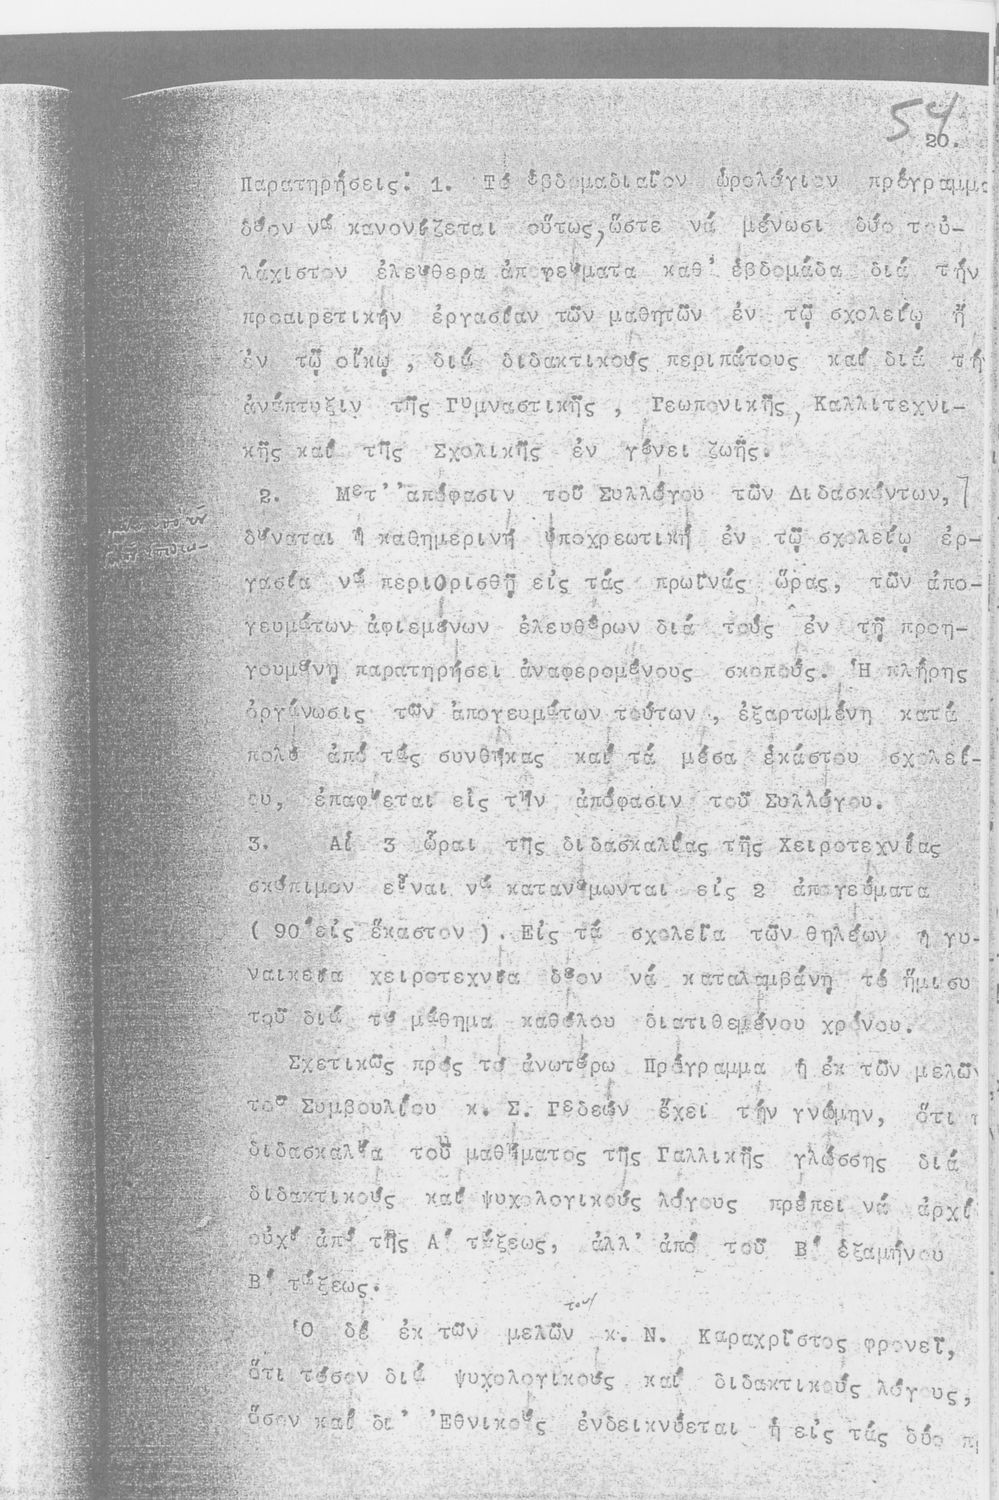 54
20.
Παρατηρήσεις: 1. Τό ἑβδομαδιαῖον ὡρολόγιον πρόγραμμα
δέον νά κανονίζεται οὕτως, ὥστε νά μένωσι δύο τοὐ-
λάχιστον ἐλεύθερα ἀπογεύματα καθ' ἑβδομάδα διά τήν
προαιρετικήν ἐργασίαν τῶν μαθητῶν ἐν τῷ σχολείῳ ἤ
ἐν τῷ οἴκῳ, διά διδακτικούς περιπάτους καί διά τήν
ἀνάπτυξιν τῆς Γυμναστικῆς, Γεωπονικῆς, Καλλιτεχνι-
κῆς καί τῆς Σχολικῆς ἐν γένει ζωῆς.
2. Μετ' ἀπόφασιν τοῦ Συλλόγου τῶν Διδασκόντων,
δύναται ἡ καθημερινή ὑποχρεωτική ἐν τῷ σχολείῳ ἐρ-
γασία νά περιορισθῇ εἰς τάς πρωϊνάς ὥρας, τῶν ἀπο-
γευμάτων ἀφιεμένων ἐλευθέρων διά τούς ἐν τῇ προη-
γουμένῃ παρατηρήσει ἀναφερομένους σκοπούς. Ἡ πλήρης
ὀργάνωσις τῶν ἀπογευμάτων τούτων, ἐξαρτωμένη κατά
πολύ ἀπό τάς συνθήκας καί τά μέσα ἑκάστου σχολεί-
ου, ἐπαφίεται εἰς τήν ἀπόφασιν τοῦ Συλλόγου.
3. Αἱ 3 ὧραι τῆς διδασκαλίας τῆς Χειροτεχνίας
σκόπιμον εἶναι νά κατανέμωνται εἰς 2 ἀπογεύματα
( 90' εἰς ἕκαστον ). Εἰς τά σχολεῖα τῶν θηλέων ἡ γυ-
ναικεία χειροτεχνία δέον νά καταλαμβάνῃ τό ἥμισυ
τοῦ διά τό μάθημα καθόλου διατιθεμένου χρόνου.
Σχετικῶς πρός τό ἀνωτέρω Πρόγραμμα ἡ ἐκ τῶν μελῶν
τοῦ Συμβουλίου κ. Σ. Γεδεών ἔχει τήν γνώμην, ὅτι
διδασκαλία τοῦ μαθήματος τῆς Γαλλικῆς γλώσσης διά
διδακτικούς καί ψυχολογικούς λόγους πρέπει νά ἀρχί
οὐχί ἀπό τῆς Α' τάξεως, ἀλλ' ἀπό τοῦ Β' ἑξαμήνου
Β' τάξεως.
Ὁ δέ ἐκ τῶν μελῶν του κ. Ν. Καραχρῖστος φρονεῖ,
ὅτι τόσον διά ψυχολογικούς καί διδακτικούς λόγους,
ὅσον καί δι' Ἐθνικούς ἐνδεικνύεται ἡ εἰς τάς δύο